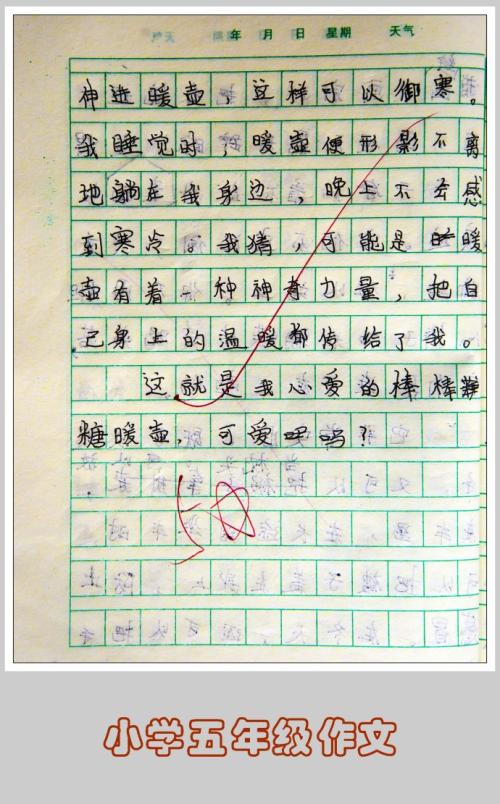 年 月 日 星期 天气
神进暖壶，这样可以御寒。
我睡觉时，暖壶便形影不离
地躺在我身边，晚上不会感
到寒冷。我猜，可能是暖
壶有着一种神奇力量，把自
己身上的温暖都传给了我。
这就是我心爱的棒棒
糖暖壶，可爱吗？
小学五年级作文